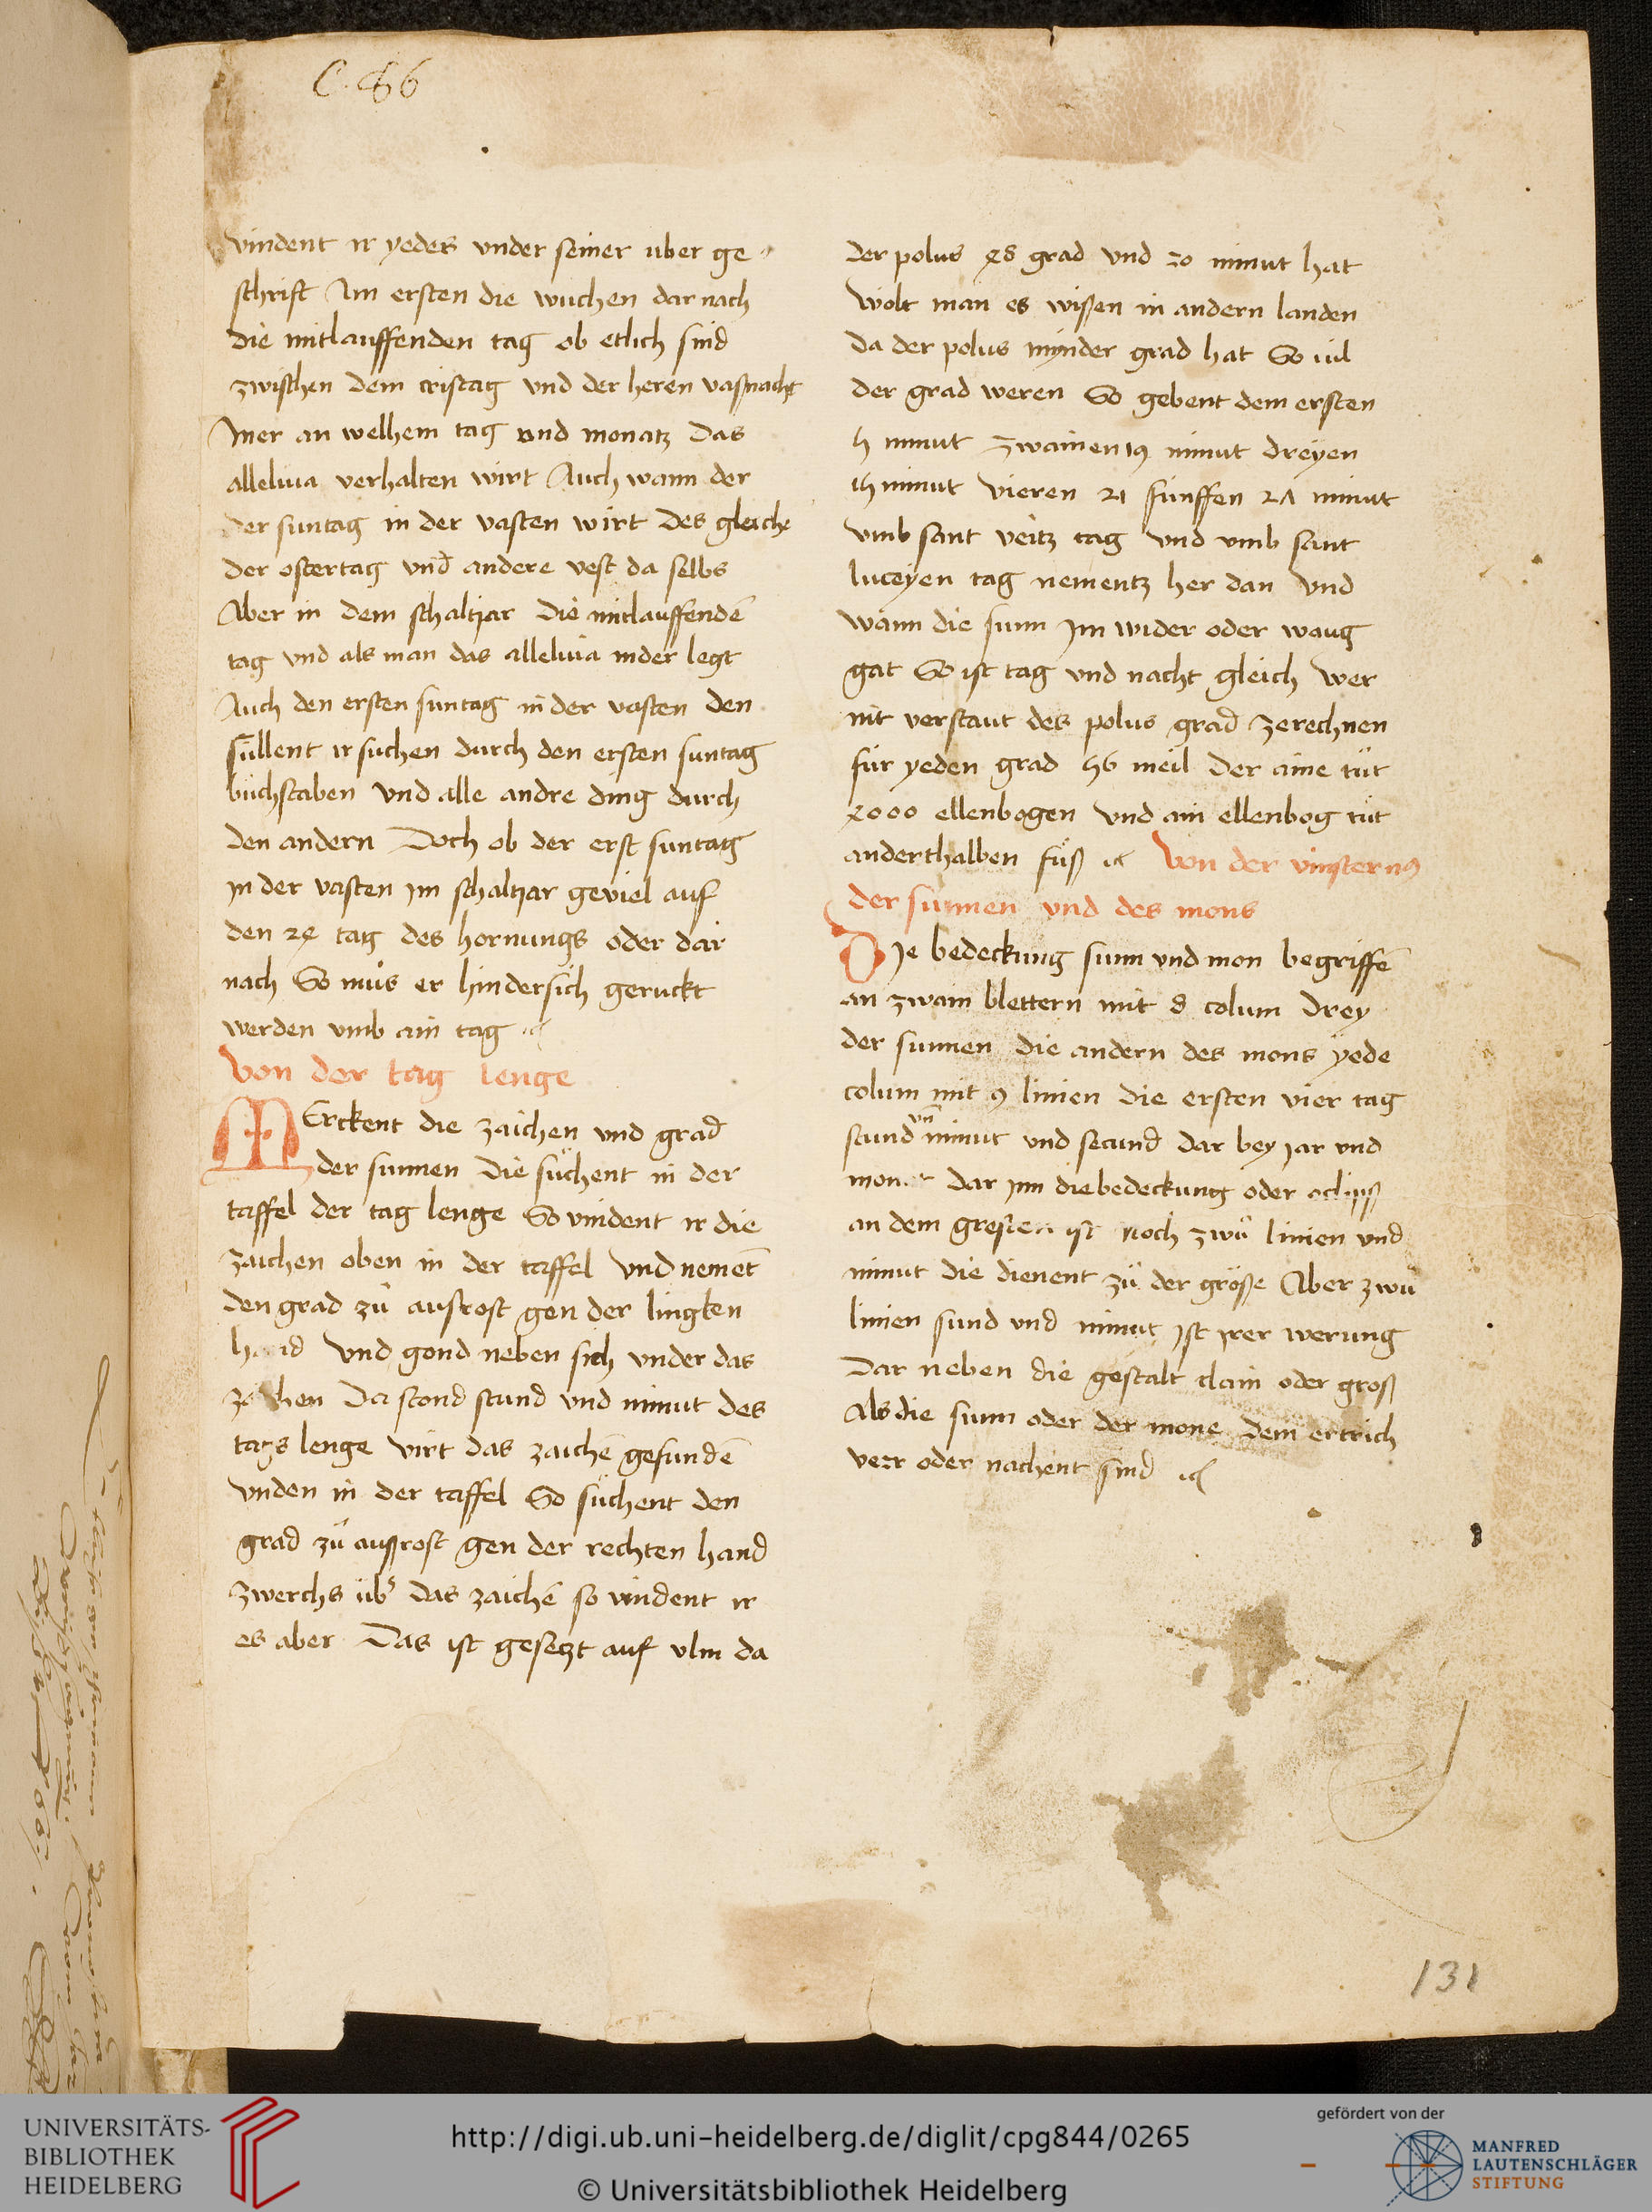 C. 86
vindent ir yedes vnder seiner uber ge
schrift Am ersten die wuchen dar nach
die mitlauffenden tag ob etlich sind
zwischen dem cristag vnd der heren vaßnacht
Mer an welhem tag vnd monatz das
alleluia verhalten wirt Auch wann der
der suntag in der vasten wirt des gleiche
der ostertag vnd andere vest da selbs
Aber in dem schaltjar die mitlauffendē
tag vnd als man das alleluia nider legt
Auch den ersten suntag in der vasten den
süllent ir suchen durch den ersten suntag
büchstaben vnd alle andre ding durch
den andern Doch ob der erst suntag
in der vasten im schaltjar geviel auf
den 24 tag des hornungs oder dar
nach So müs er hindersich geruckt
werden vmb ain tag
Von der tag lenge
MErckent die zaichen vnd grad
der sunnen die süchent in der
taffel der tag lenge So vindent ir die
zaichen oben in der taffel vnd nemēt
den grad zü ausrost gen der lingken
hand vnd gond neben sich vnder das
zaichen Da stond stund vnd minut des
tags lenge virt das zaichē gefundē
vnden in der taffel So süchent den
grad zü aussrost gen der rechten hand
zwerchs üb̛ das zaichē so vindent ir
es aber Das ist gesetzt auf vlm da
der polus 48 grad vnd 20 minut hat
Wolt man es wißen in andern landen
da der polus mynder grad hat So uil
der grad weren So gebent dem ersten
5 minut zwainen 19 minut dreyen
15 minut vieren 21 fünffen 27 minut
vmb sant veitz tag vnd vmb sant
luceyen tag nementz her dan vnd
wann die sunn im wider oder waug
gat So ist tag vnd nacht gleich Wer
nit verstaut des polus grad zerechnen
für yeden grad 56 meil der aine tüt
4000 ellenbogen vnd ain ellenbog tüt
anderthalben füß Von der vinsternꝰ
der sunnen vnd des mons
Die bedeckung sunn vnd mon begriffē
an zwain blettern mit 8 colum drey
der sunnen die andern des mons yede
colum mit 9 linien die ersten vier tag
stund vn̄ minut vnd secund dar bey jar vnd
monet dar inn die bedeckung oder eclipß
an dem gresten ist Noch zwü linien vnd
minut die dienent zü der größe Aber zwu
linien stund vnd minut ist irer werung
Dar neben die gestalt clain oder groß
Als die sunn oder der mone dem ertrich
verr oder nachent sind
131
UNIVERSITÄTS-
BIBLIOTHEK
HEIDELBERG
http://digi.ub.uni-heidelberg.de/diglit/cpg844/0265
© Universitätsbibliothek Heidelberg
gefördert von der
MANFRED
LAUTENSCHLÄGER
STIFTUNG